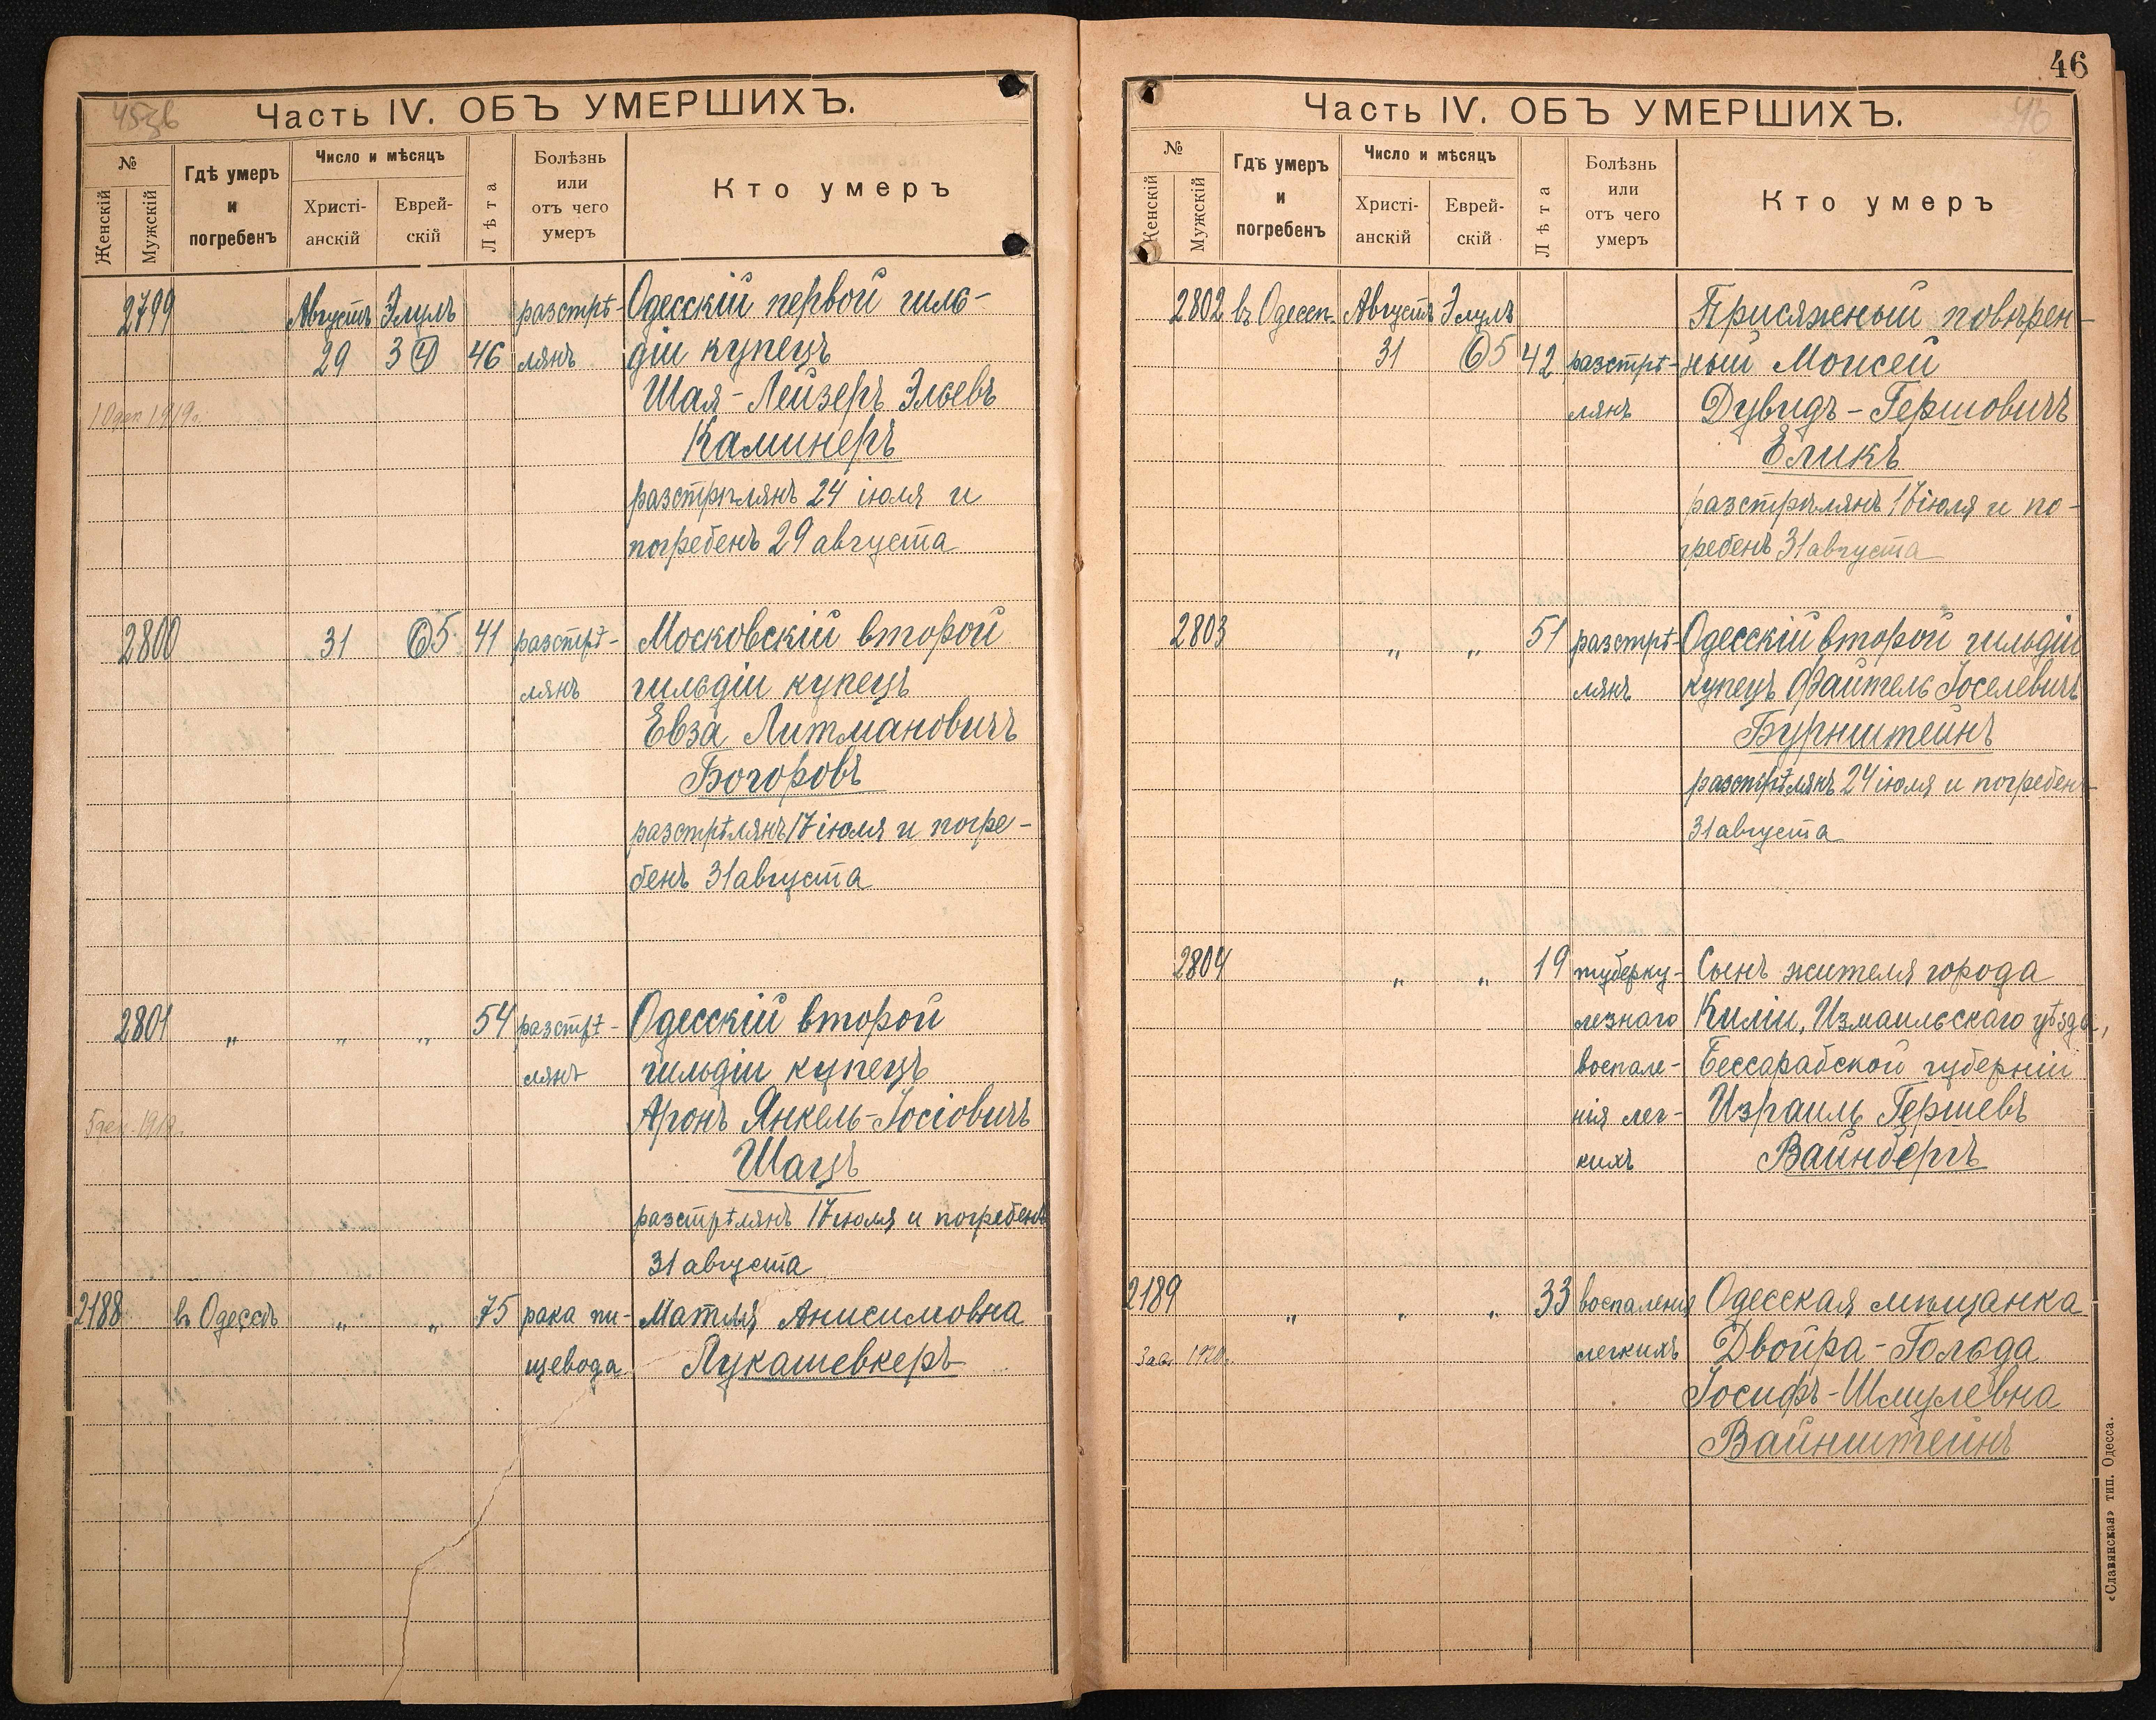 45зв
Часть IV. ОБЪ УМЕРШИХЪ.
№
Женскій
Мужскій
Гдѣ умеръ
и
погребенъ
Число и мѣсяцъ
Христі-
анскій
Еврей-
скій
Лѣта
Болѣзнь
или
отъ чего
умеръ
Кто умеръ
2799 Августъ Элулъ разстрѣ- Одесскій первой гиль-
29 3 4 46 лянъ діи купецъ
Шая-Лейзеръ Эльевъ
Каминеръ
разстрѣлянъ 24 іюля и
погребенъ 29 августа
2800 31 6 5 41 разстрѣ- Московскій второй
лянъ гильдіи купецъ
Евза Литмановичъ
Богоровъ
разстрѣлянъ 17 іюля и погре-
бенъ 31 августа
2801 „ „ „ 54 разстрѣ- Одесскій второй
лянъ гильдіи купецъ
Аронъ Янкель-Іосіовичъ
Шацъ
разстрѣлянъ 17 іюля и погребенъ
31 августа
2188 въ Одессѣ „ „ 75 рака пи- Матля Анисимовна
щевода Лукашевкеръ
46
46
Часть IV. ОБЪ УМЕРШИХЪ.
№
Женскій
Мужскій
Гдѣ умеръ
и
погребенъ
Число и мѣсяцъ
Христі-
анскій
Еврей-
скій
Лѣта
Болѣзнь
или
отъ чего
умеръ
Кто умеръ
2802 въ Одессѣ Августъ Элулъ Присяжный повѣрен-
31 6 5 42 разстрѣ- ный Моисей
лянъ Дувидъ-Гершовичъ
Еликъ
разстрѣлянъ 17 іюля и по-
гребенъ 31 августа
2803 „ „ 51 разстрѣ- Одесскій второй гильдіи
лянъ купецъ Файтель Іоселевичъ
Бурнштейнъ
разстрѣлянъ 24 іюля и погребенъ
31 августа
2804 „ „ 19 туберку- Сынъ жителя города
лезнаго Киліи, Измаильскаго уѣзда,
воспале- Бессарабской губерніи
нія лег- Израиль Гершевъ
кихъ Вайнбергъ
2189 „ „ „ 33 воспаленія Одесская мѣщанка
легкихъ Двойра-Гольда
Іосифъ-Шмулевна
Вайнштейнъ
«Славянская» тип. Одесса.